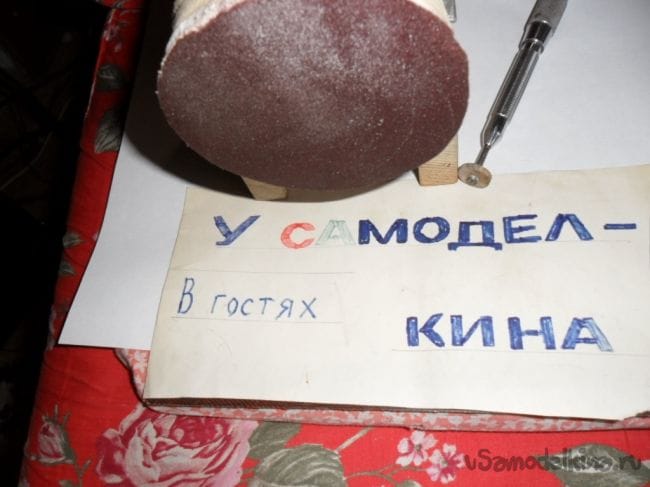 У САМОДЕЛ-
В гостях
КИНА
uSamodelkina.ru